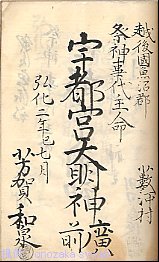 越後國魚沼郡
小数沖村
祭神事代主命
宇都宮大明神廣前
弘化二年巳七月
芳賀和泉